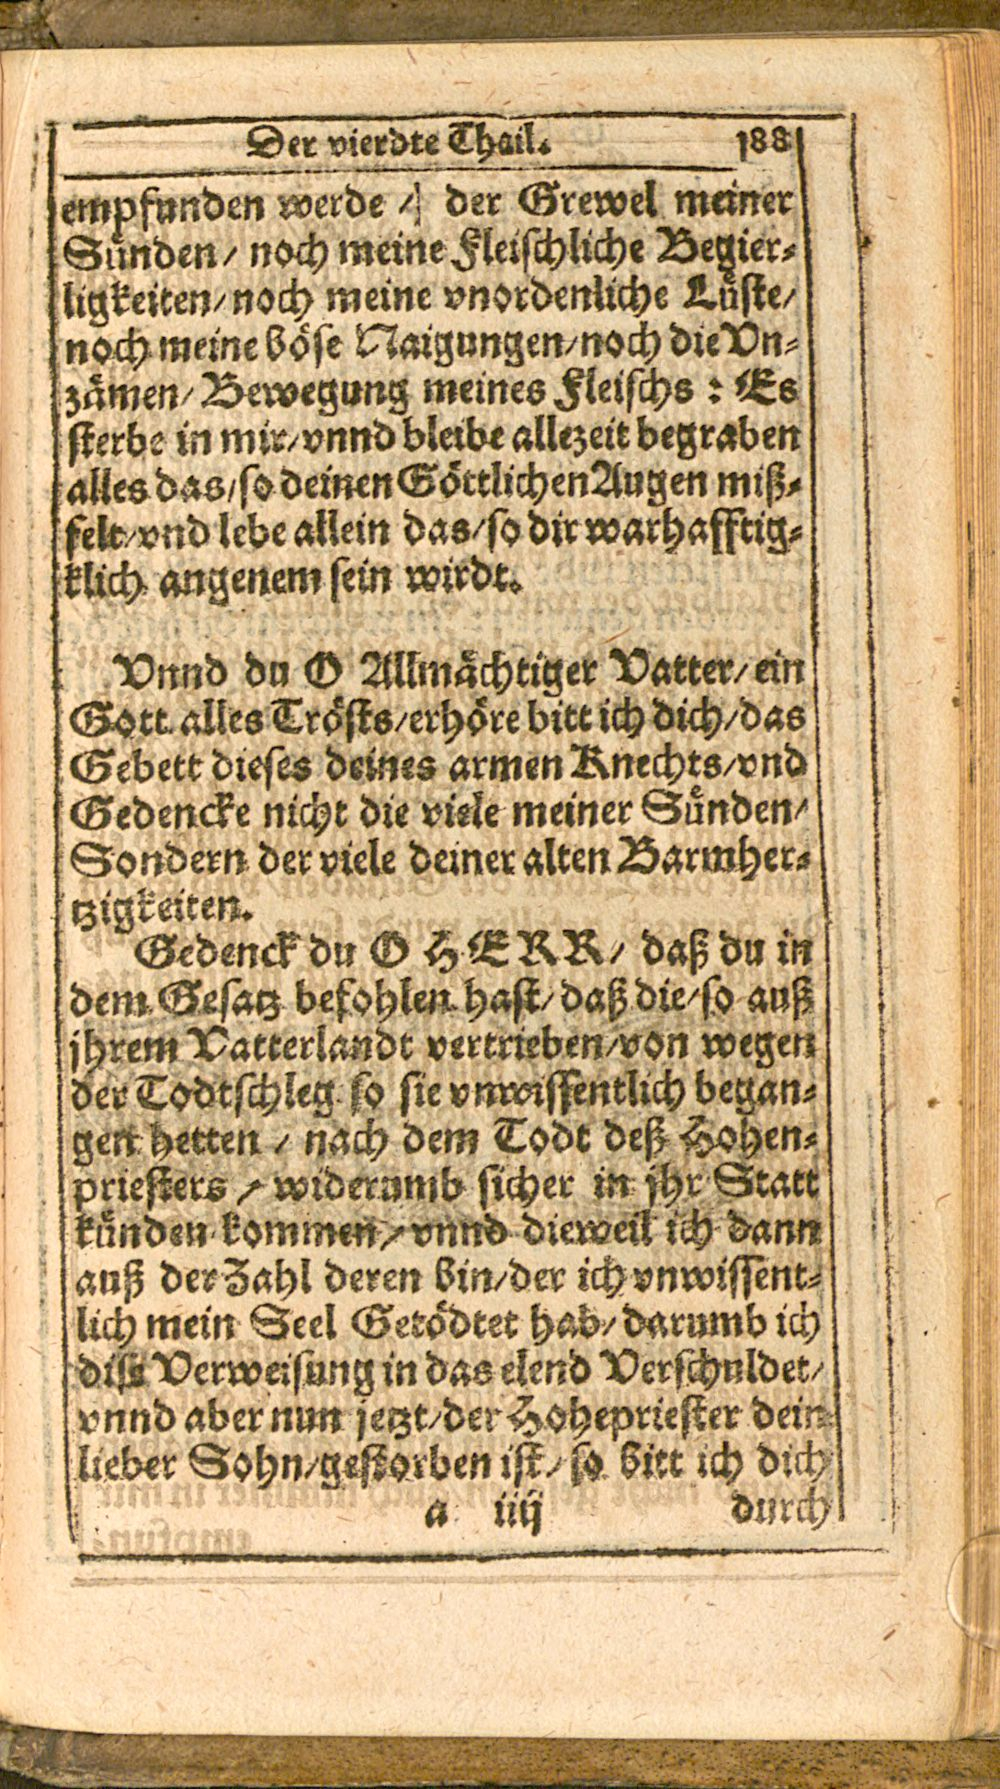 Der vierdte Thail. 188
empfunden werde / der Grewel meiner
Sünden / noch meine Fleischliche Begier-
ligkeiten / noch meine vnordenliche Lüste /
noch meine böse Naigungen / noch die Vn-
zämen / Bewegung meines Fleischs : Es
sterbe in mir / vnnd bleibe allezeit begraben
alles das / so deinen Göttlichen Augen miß-
felt / vnd lebe allein das / so dir warhafftig-
klich angenem sein wirdt.
Vnnd du O Allmächtiger Vatter / ein
Gott alles Trösts / erhöre bitt ich dich / das
Gebett dieses deines armen Knechts / vnd
Gedencke nicht die viele meiner Sünden /
Sondern der viele deiner alten Barmher-
tzigkeiten.
Gedenck du O HERR / daß du in
dem Gesatz befohlen hast / daß die / so auß
jhrem Vatterlandt vertrieben / von wegen
der Todtschleg so sie vnwissentlich began-
gen hetten / nach dem Todt deß Hohen-
priesters / widerumb sicher in jhr Statt
künden kommen / vnnd dieweil ich dann
auß der Zahl deren bin / der ich vnwissent-
lich mein Seel Getödtet hab / darumb ich
dise Verweisung in das elend Verschuldet /
vnnd aber nun jetzt / der Hohepriester dein
lieber Sohn / gestorben ist / so bitt ich dich
a iiij durch